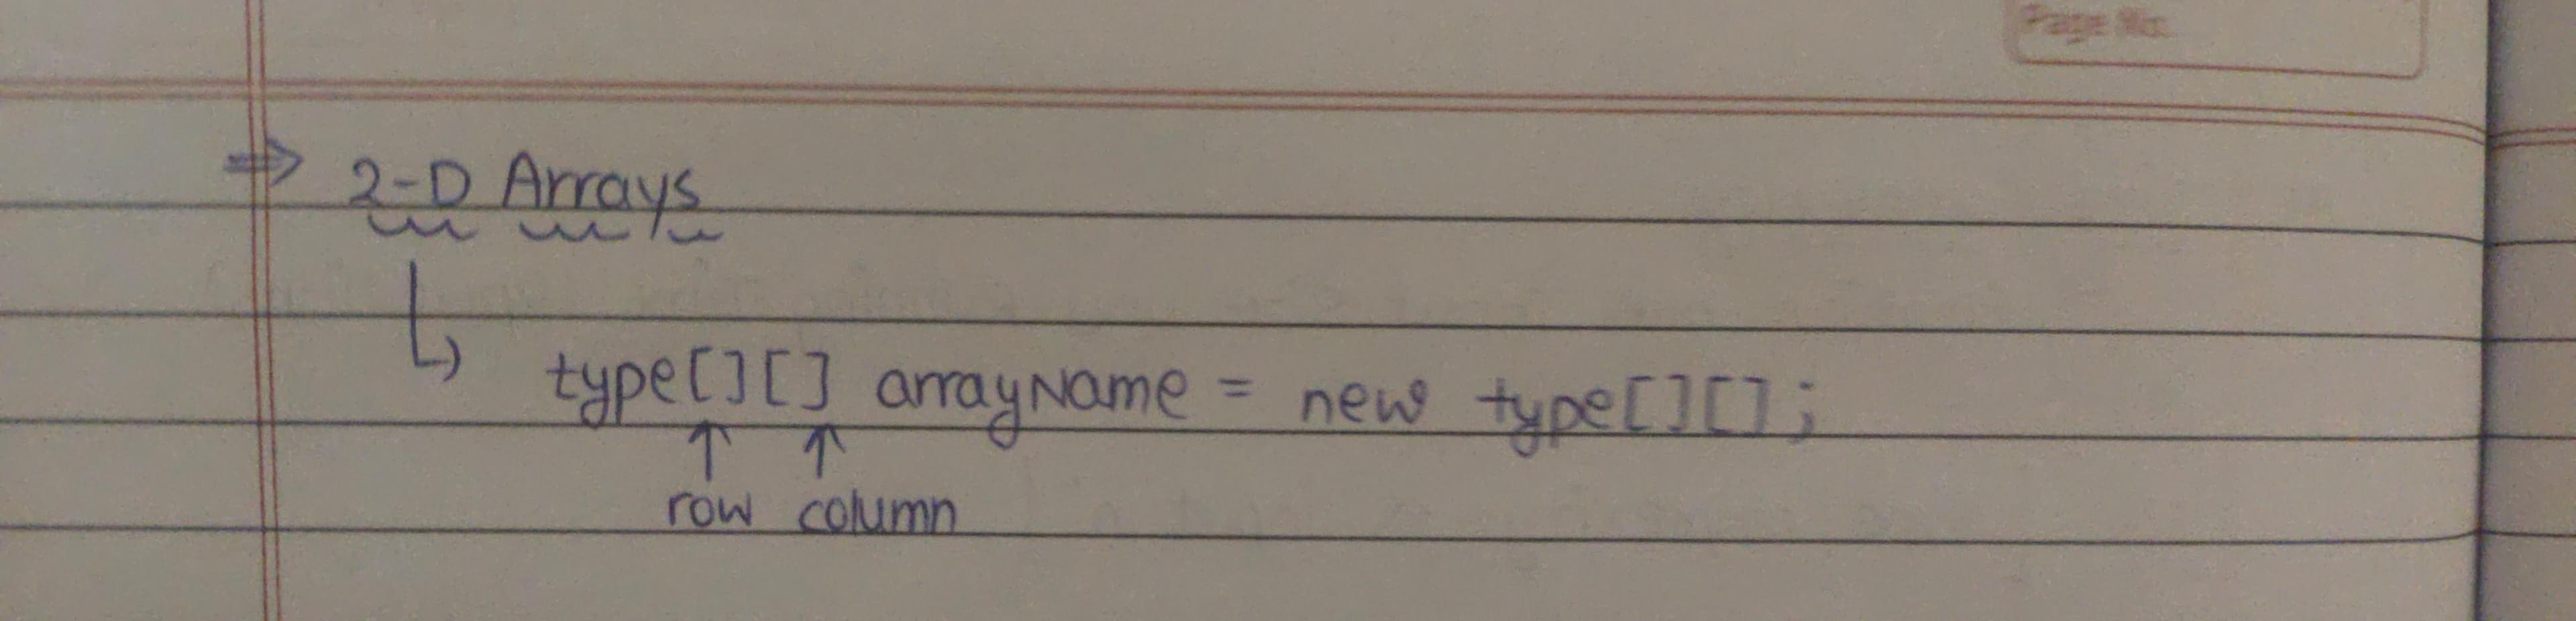 Page No.
⇒ 2-D Arrays
↳ type[][] arrayName = new type[][];
↑ ↑
row column